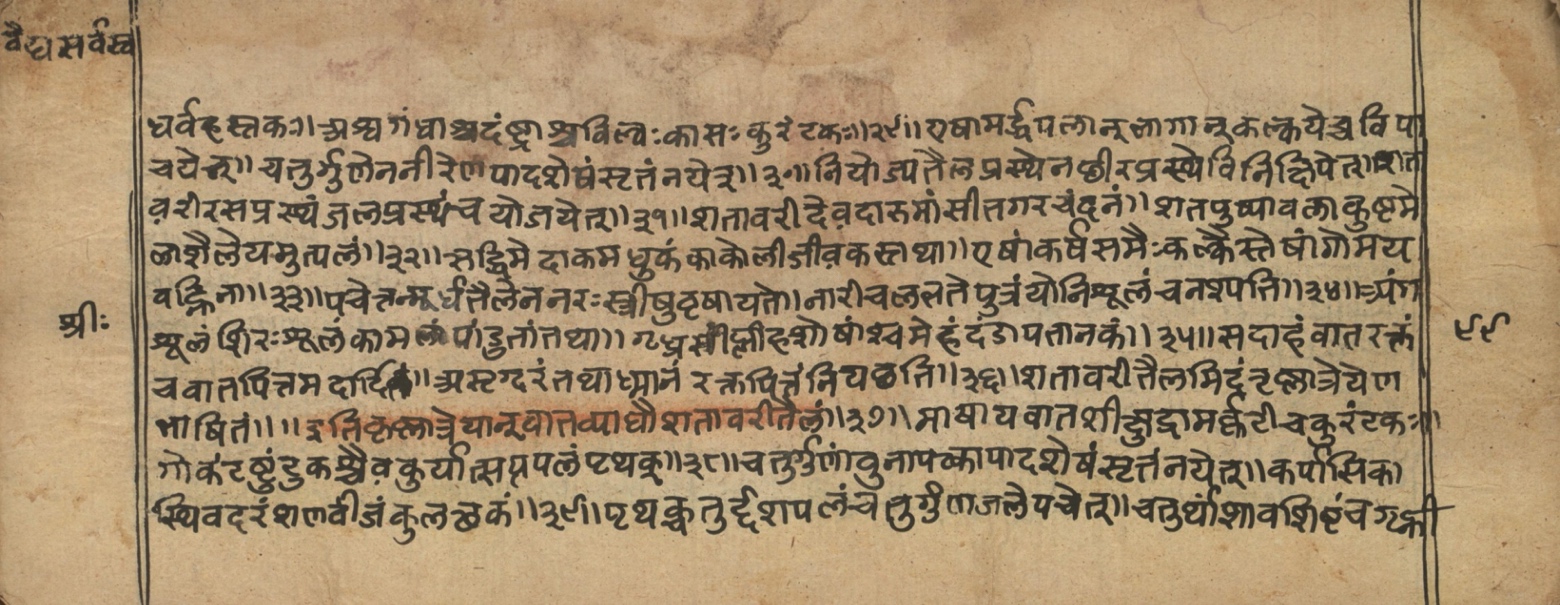 वैद्यसर्वस्व
धर्वहस्तकः॥अश्वगंधाश्वदंष्ट्राश्चविल्वःकासःकुरंटकः॥२९॥एषामर्द्धपलान्भागान्कल्कयेच्चविपा
चयेत्॥चतुर्गुणेननीरेणपादशेषंसृतंनयेत्॥३०॥नियोज्यतैलप्रस्थेनछीरप्रस्थेविनिक्षिपेत्॥शता
वरीरसप्रस्थंजलप्रस्थंचयोजयेत्॥३१॥शतावरीदेवदारुमांसीतगरचंदनं॥शतपुष्पावलाकुष्टमे
लाशैलेयमुत्पलं॥३२॥ऋद्धिमेदाकमधुकंकाकोलीजीवकस्तथा॥एषांकर्षसमैःकल्कैस्तेषांगोमय
वह्निना॥३३॥पचेत्तन्मूर्धतैलेननरःस्त्रीषुवृषायते॥नारीचलभतेपुत्रंयोनिशूलंचनश्यति॥३४॥अंग
श्रीः
शूलंशिरःशूलंकामलांपांडुतांतथा॥गृध्रसींप्लीहशोषांश्चमेहंदंडापतानकं॥३५॥सदाहंवातरक्तं
९९
चवातपित्तमदार्दितं॥असृग्दरंतथाध्मानंरक्तपित्तंनियछति॥३६॥शतावरीतैलमिदंकृष्णात्रेयेण
भाषितं॥॥इतिकृष्णात्रेयान्वातव्याधौशतावरीतैलं॥३७॥माषायवातशीक्षुद्रामर्कटीचकुरंटकः॥
गोकंटष्टुंटुकश्चैवकुर्यात्सप्तपलंपृथक्॥३८॥चतुर्गुणांवुनापक्वापादशेषंसृतंनयेत्॥कर्पासिका
स्थिवदरंशणवीजंकुलछकं॥३९॥पृथक्चतुर्द्दशपलंचतुर्गुणजलेपचेत्॥चतुर्थांशावशिष्टंचगृह्णी